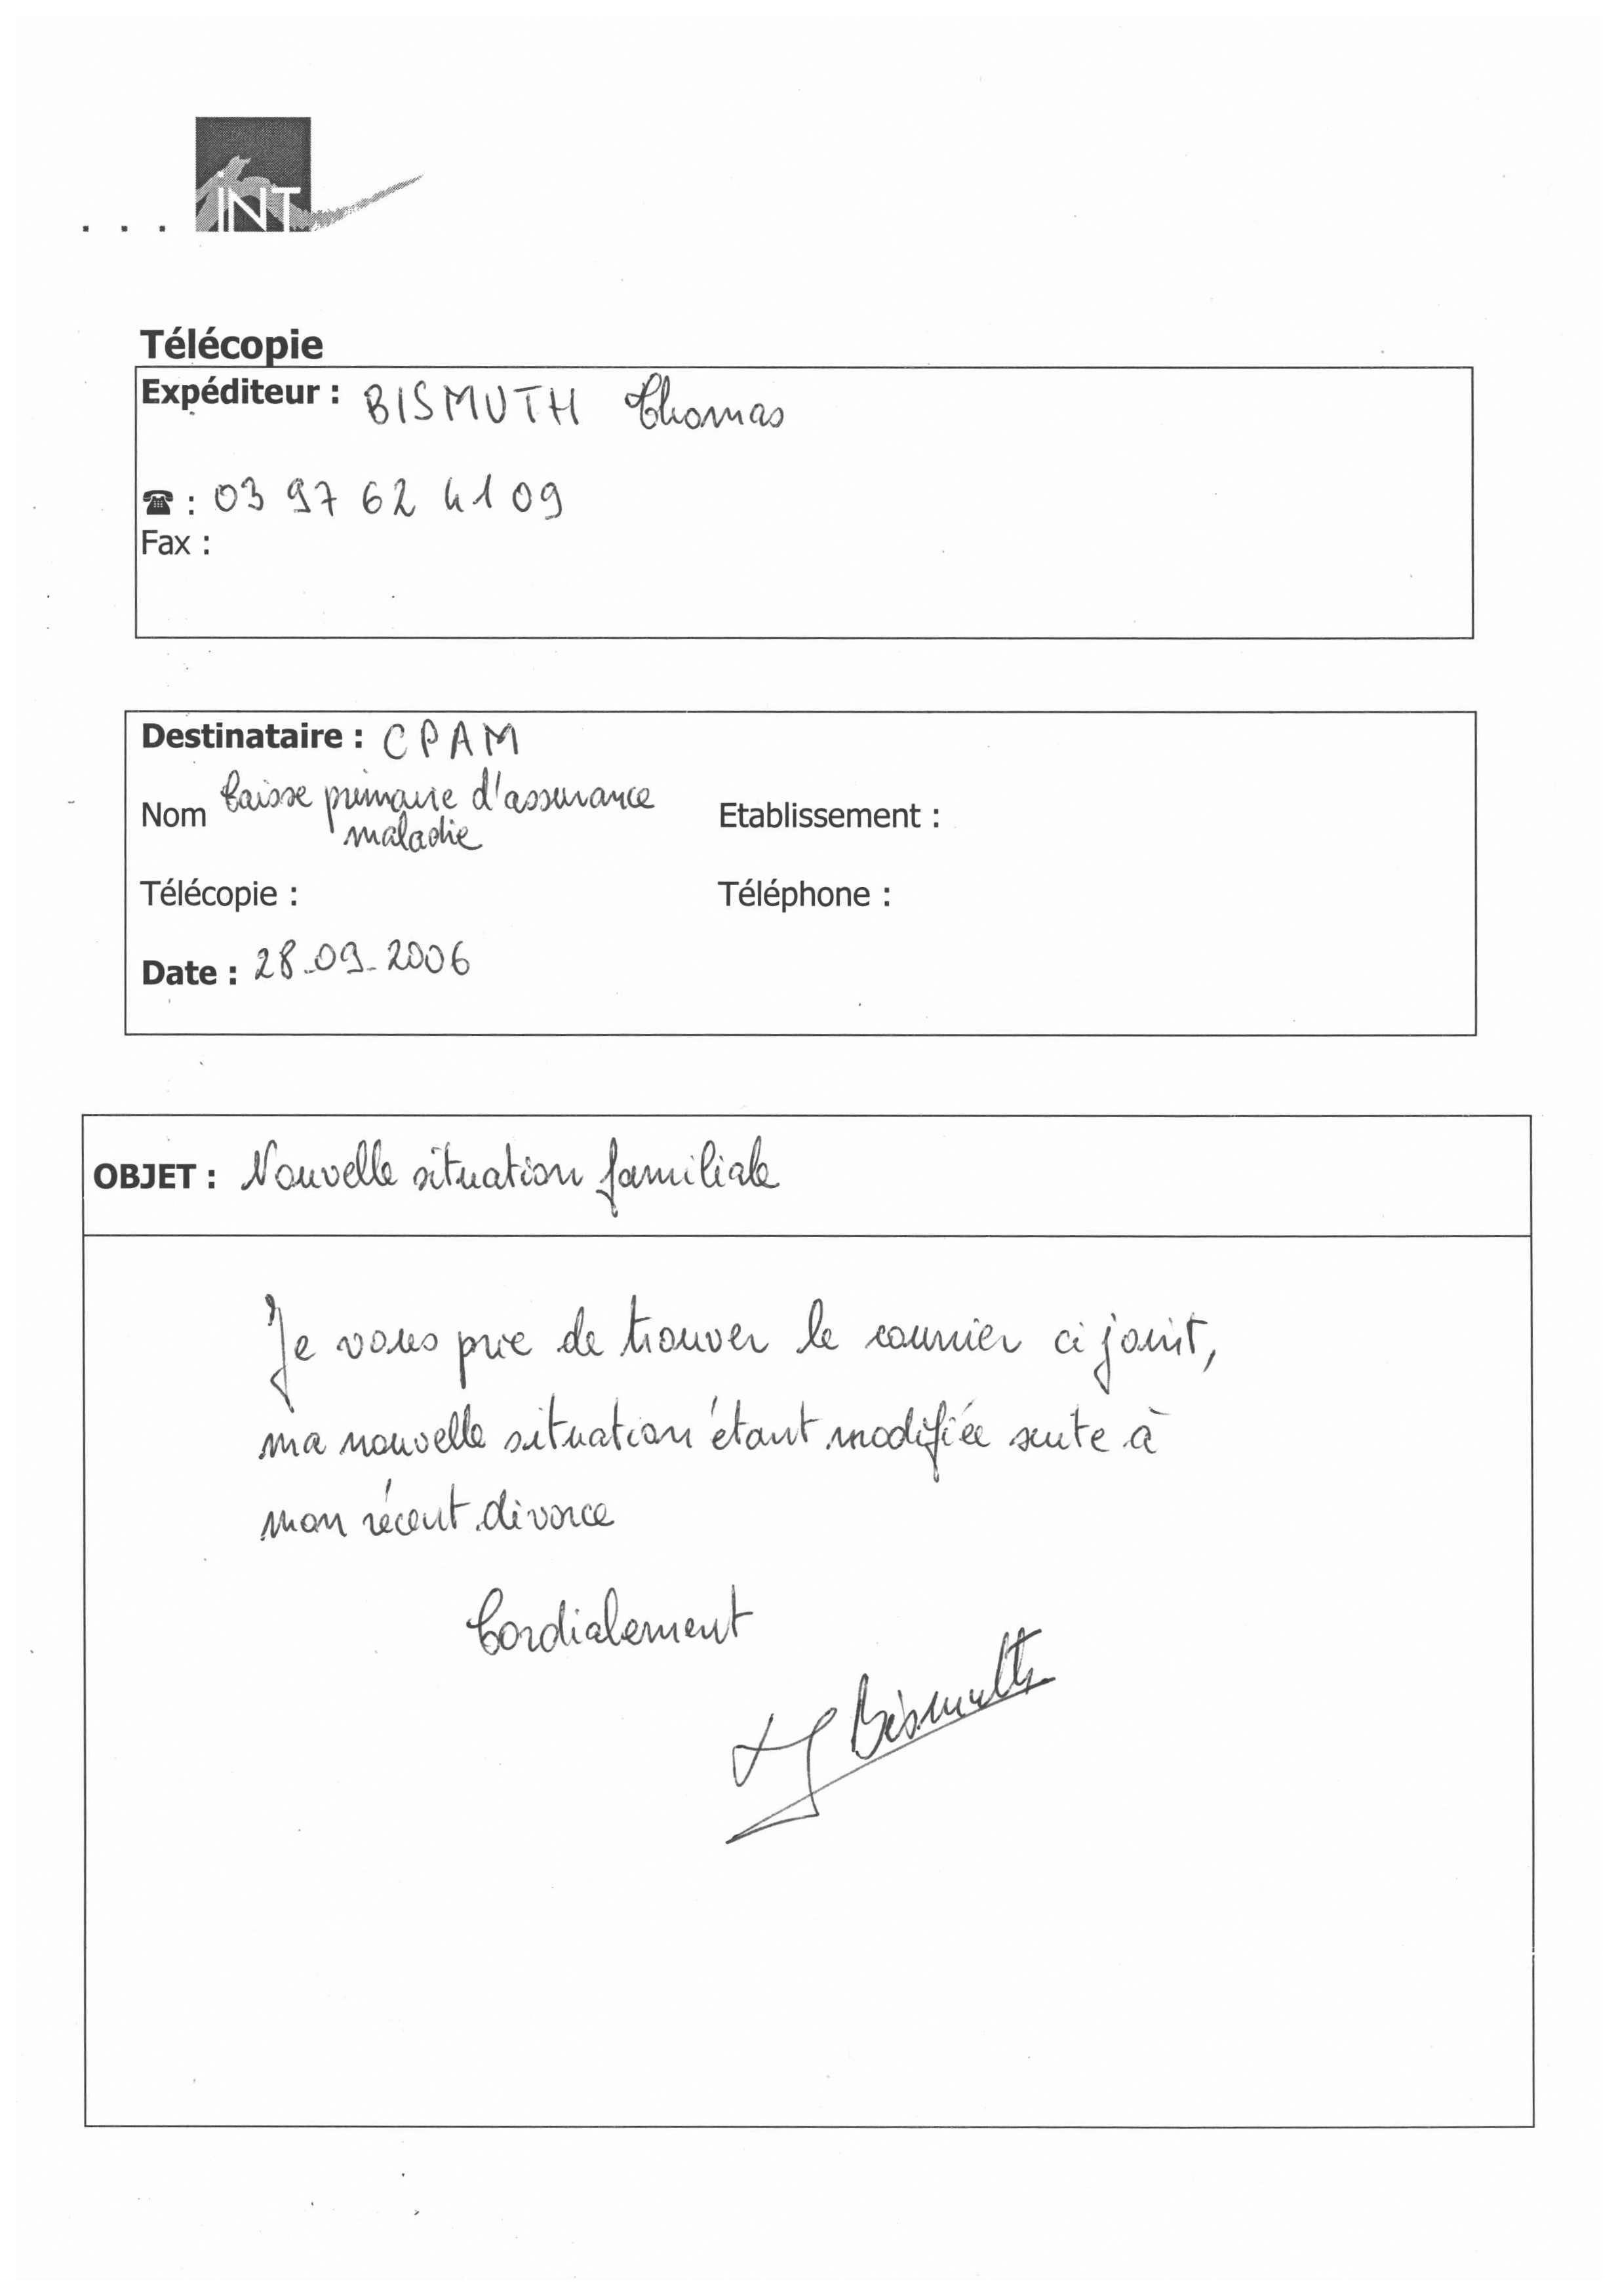 INT
Télécopie
Expéditeur : BISMUTH Thomas
☎ : 03 97 62 41 09
Fax :
Destinataire : CPAM
Nom Caisse primaire d'assurance
maladie
Etablissement :
Télécopie :
Téléphone :
Date : 28.09.2006
OBJET : Nouvelle situation familiale
Je vous prie de trouver le courrier ci joint,
ma nouvelle situation étant modifiée suite à
mon récent divorce
Cordialement
Bismuth